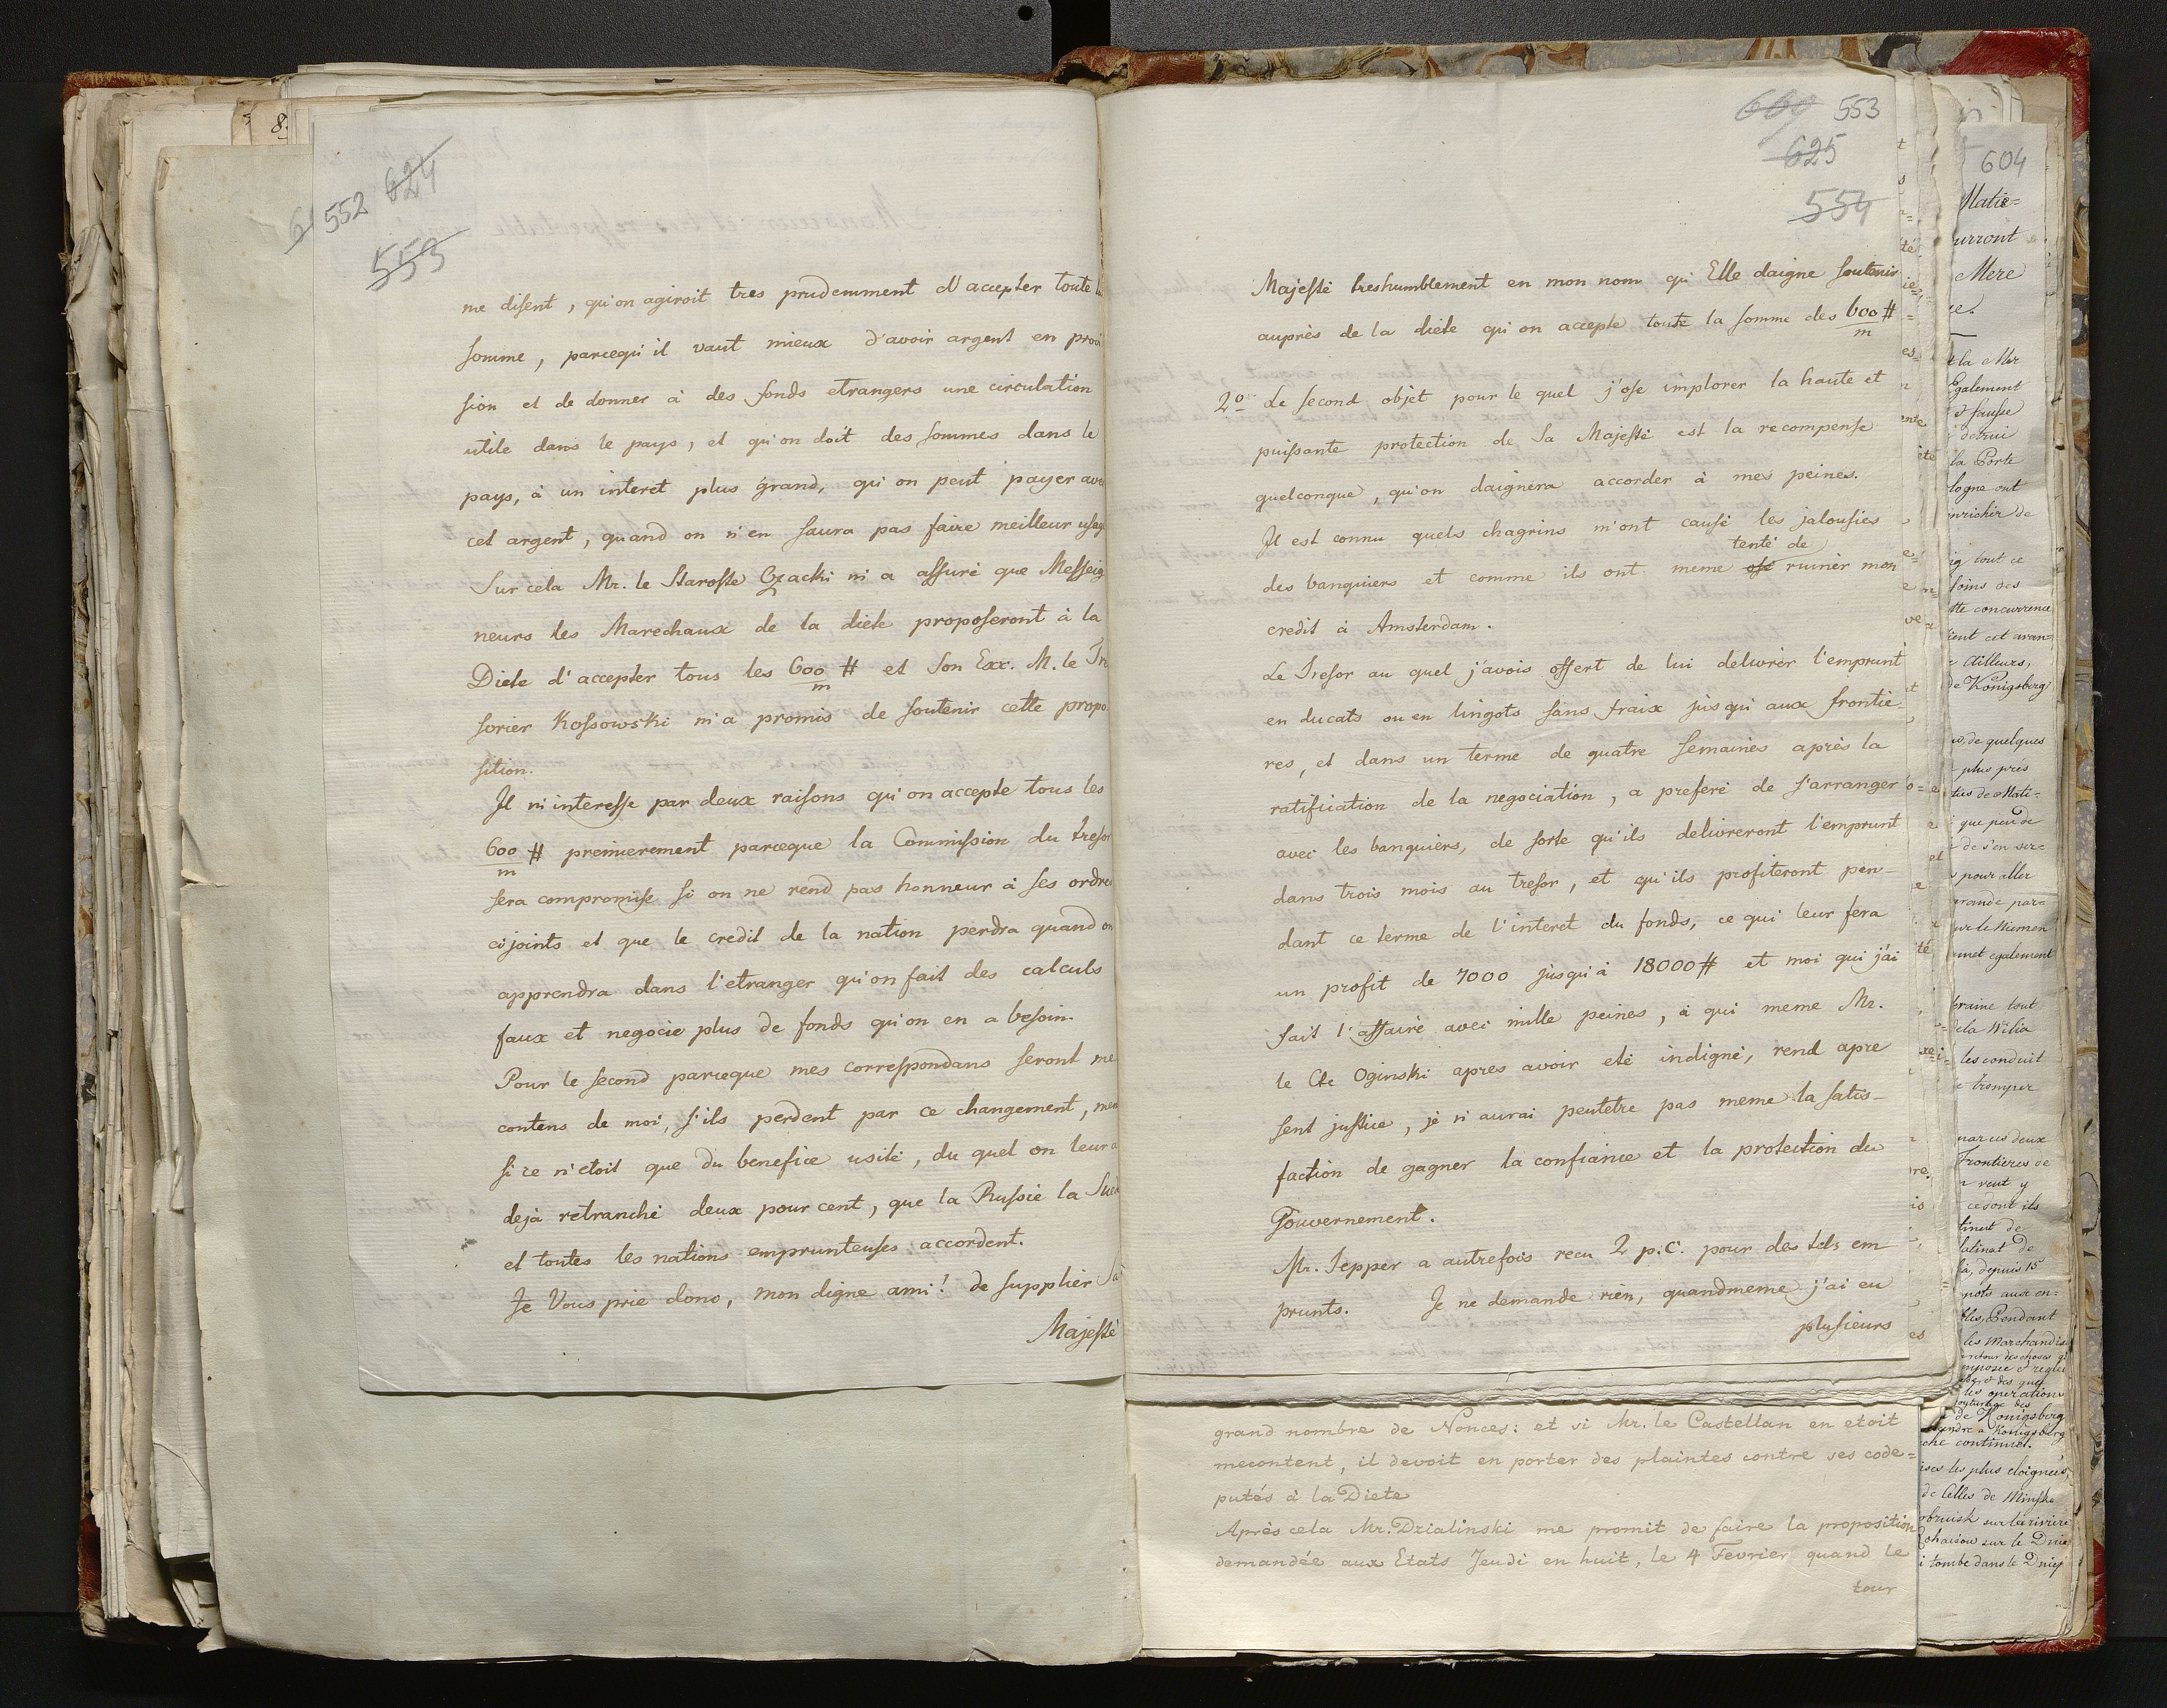 8.
552 624
553
me disent, qu'on agiroit tres prudemment d'accepter toute
somme, parcequ'il vaut mieux d'avoir argent en provi
sion et de donner à des fonds etrangers une circulation
utile dans le pays, et qu'on doit des sommes dans le
pays, à un interet plus grand, qu'on peut payer avec
cet argent, quand on n'en saura pas faire meilleur usage
Sur cela Mr. le Staroste Czacki m'a assuré que Messeig
neurs les Marechaux de la diete proposeront à la
Diete d'accepter tous les 600 # et Son Exc. M. le Tre
m
sorier Kossowski m'a promis de soutenir cette propo
sition.
Il m'interesse par deux raisons qu'on accepte tous les
600 # premierement parceque la Commission du tresor
m
sera compromise si on ne rend pas honneur à ses ordres
cijoints et que le credit de la nation perdra quand on
apprendra dans l'etranger qu'on fait des calculs
faux et negocie plus de fonds qu'on en a besoin.
Pour le second parceque mes correspondans seront me
contens de moi, s'ils perdent par ce changement, mem
si ce n'etoit que du benefice usité, du quel on leur a
dejà retranché deux pour cent, que la Russie la Sued
et toutes les nations emprunteuses accordent.
Je Vous prie donc, mon digne ami! de supplier Sa
Majesté
660 553
625
554
Majesté treshumblement en mon nom qu'Elle daigne soutenir
auprès de la diete qu'on accepte toute la somme des 600 #
m
2o Le second objet pour le quel j'ose implorer la haute et
puissante protection de Sa Majesté est la recompense
quelconque, qu'on daignera accorder à mes peines.
Il est connu quels chagrins m'ont causé les jalousies
tenté de
des banquiers et comme ils ont meme osé ruiner mon
credit à Amsterdam.
Le Tresor au quel j'avois offert de lui delivrer l'emprunt
en ducats ou en lingots sans fraix jusqu'aux frontie-
res, et dans un terme de quatre semaines après la
ratification de la negociation, a preferé de s'arranger
avec les banquiers, de sorte qu'ils delivreront l'emprunt
dans trois mois au tresor, et qu'ils profiteront pen-
dant ce terme de l'interet du fonds, ce qui leur fera
un profit de 7000 jusqu'à 18000 # et moi qui j'ai
fait l'affaire avec mille peines, à qui meme Mr.
le Cte Oginski apres avoir eté indigné, rend apre
sent justice, je n'aurai peutetre pas meme la satis-
faction de gagner la confiance et la protection du
Gouvernement.
Mr. Tepper a autrefois recu 2 p.C. pour des tels em
prunts. Je ne demande rien, quandmeme j'ai eu
plusieurs
grand nombre de Nonces: et si Mr. le Castellan en etoit
mecontent, il devoit en porter des plaintes contre ses code=
putés à la Diete
Après cela Mr. Dzialinski me promit de faire la proposition
demandée aux Etats Jeudi en huit, le 4 Fevrier quand le
tour
604
Matie=
urront
Mere
la Mer
Egalement
fausse
la Porte
logne ont
nrichir de
tout ce
soins des
tte concurrence
ient cet avan=
Ailleurs,
de Königsberg
de quelques
plus près
ties de Mati=
que peu de
de s'en ser=
pour aller
grande par=
sur le Niemen
met egalement
braine tout
de la Wilia
les conduit
tromper
par ces deux
Frontieres de
veut y
ce dont ils
tinat de
latinat de
là, depuis 15
pots aux en=
bles, Pendant
les Marchandise
retour des choses
mposée et reglée
les operations
de Königsberg
à Königsberg
che continuel.
ises les plus eloignées,
de Celles de Minsk
obruisk sur la riviere
Rohaczow sur le Dnie
i tombe dans le Dniep